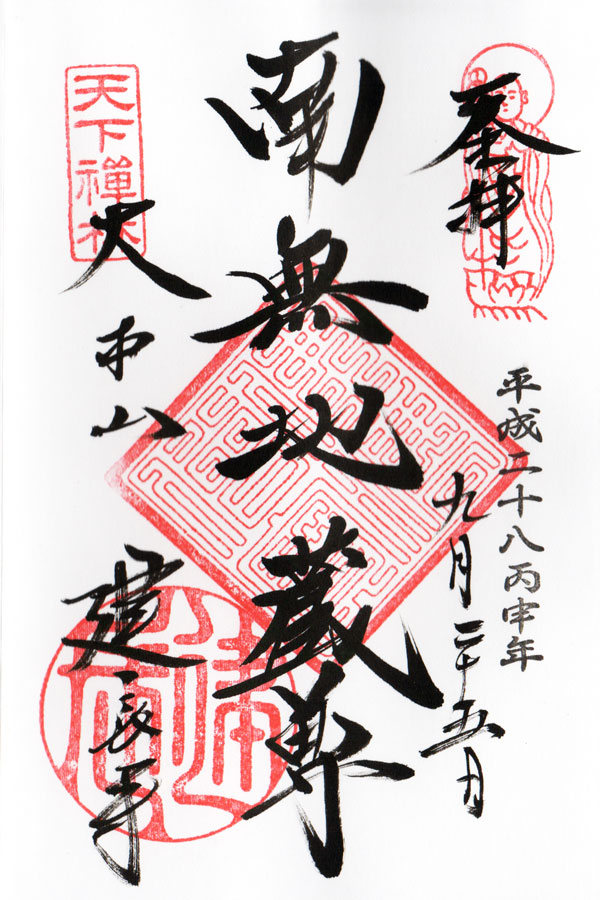 奉拝
平成二十八丙申年
九月二十五日
南無地蔵尊
天下禪林
大本山
建長寺